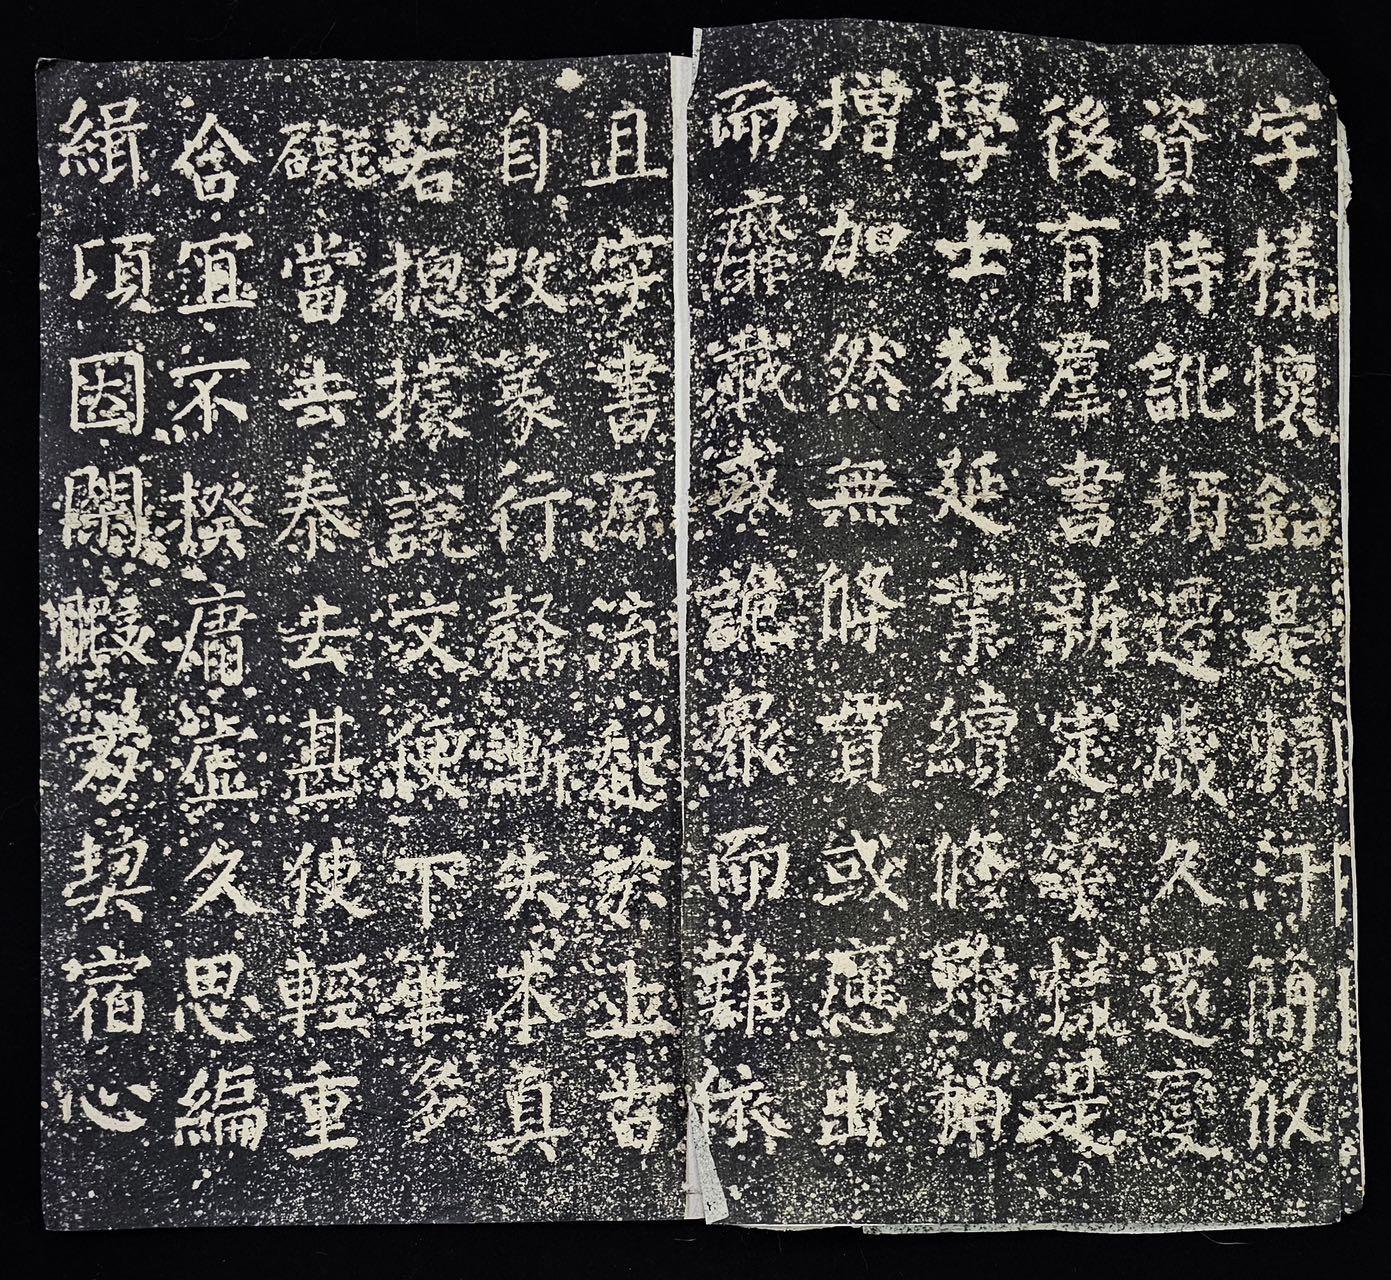 字樣懷鉛是賴汗簡攸
資時訛頓遷歲久還變
後有羣書新定字樣是
學士杜延業續修雖稍
增加然無條貫或應出
而靡載或詭衆而難依
且字書源流起於上古
自改篆行隸漸失本真
若總據說文便下筆多
礙當去泰去甚使輕重
合宜不揆庸虛久思編
緝頃因閒暇方契宿心